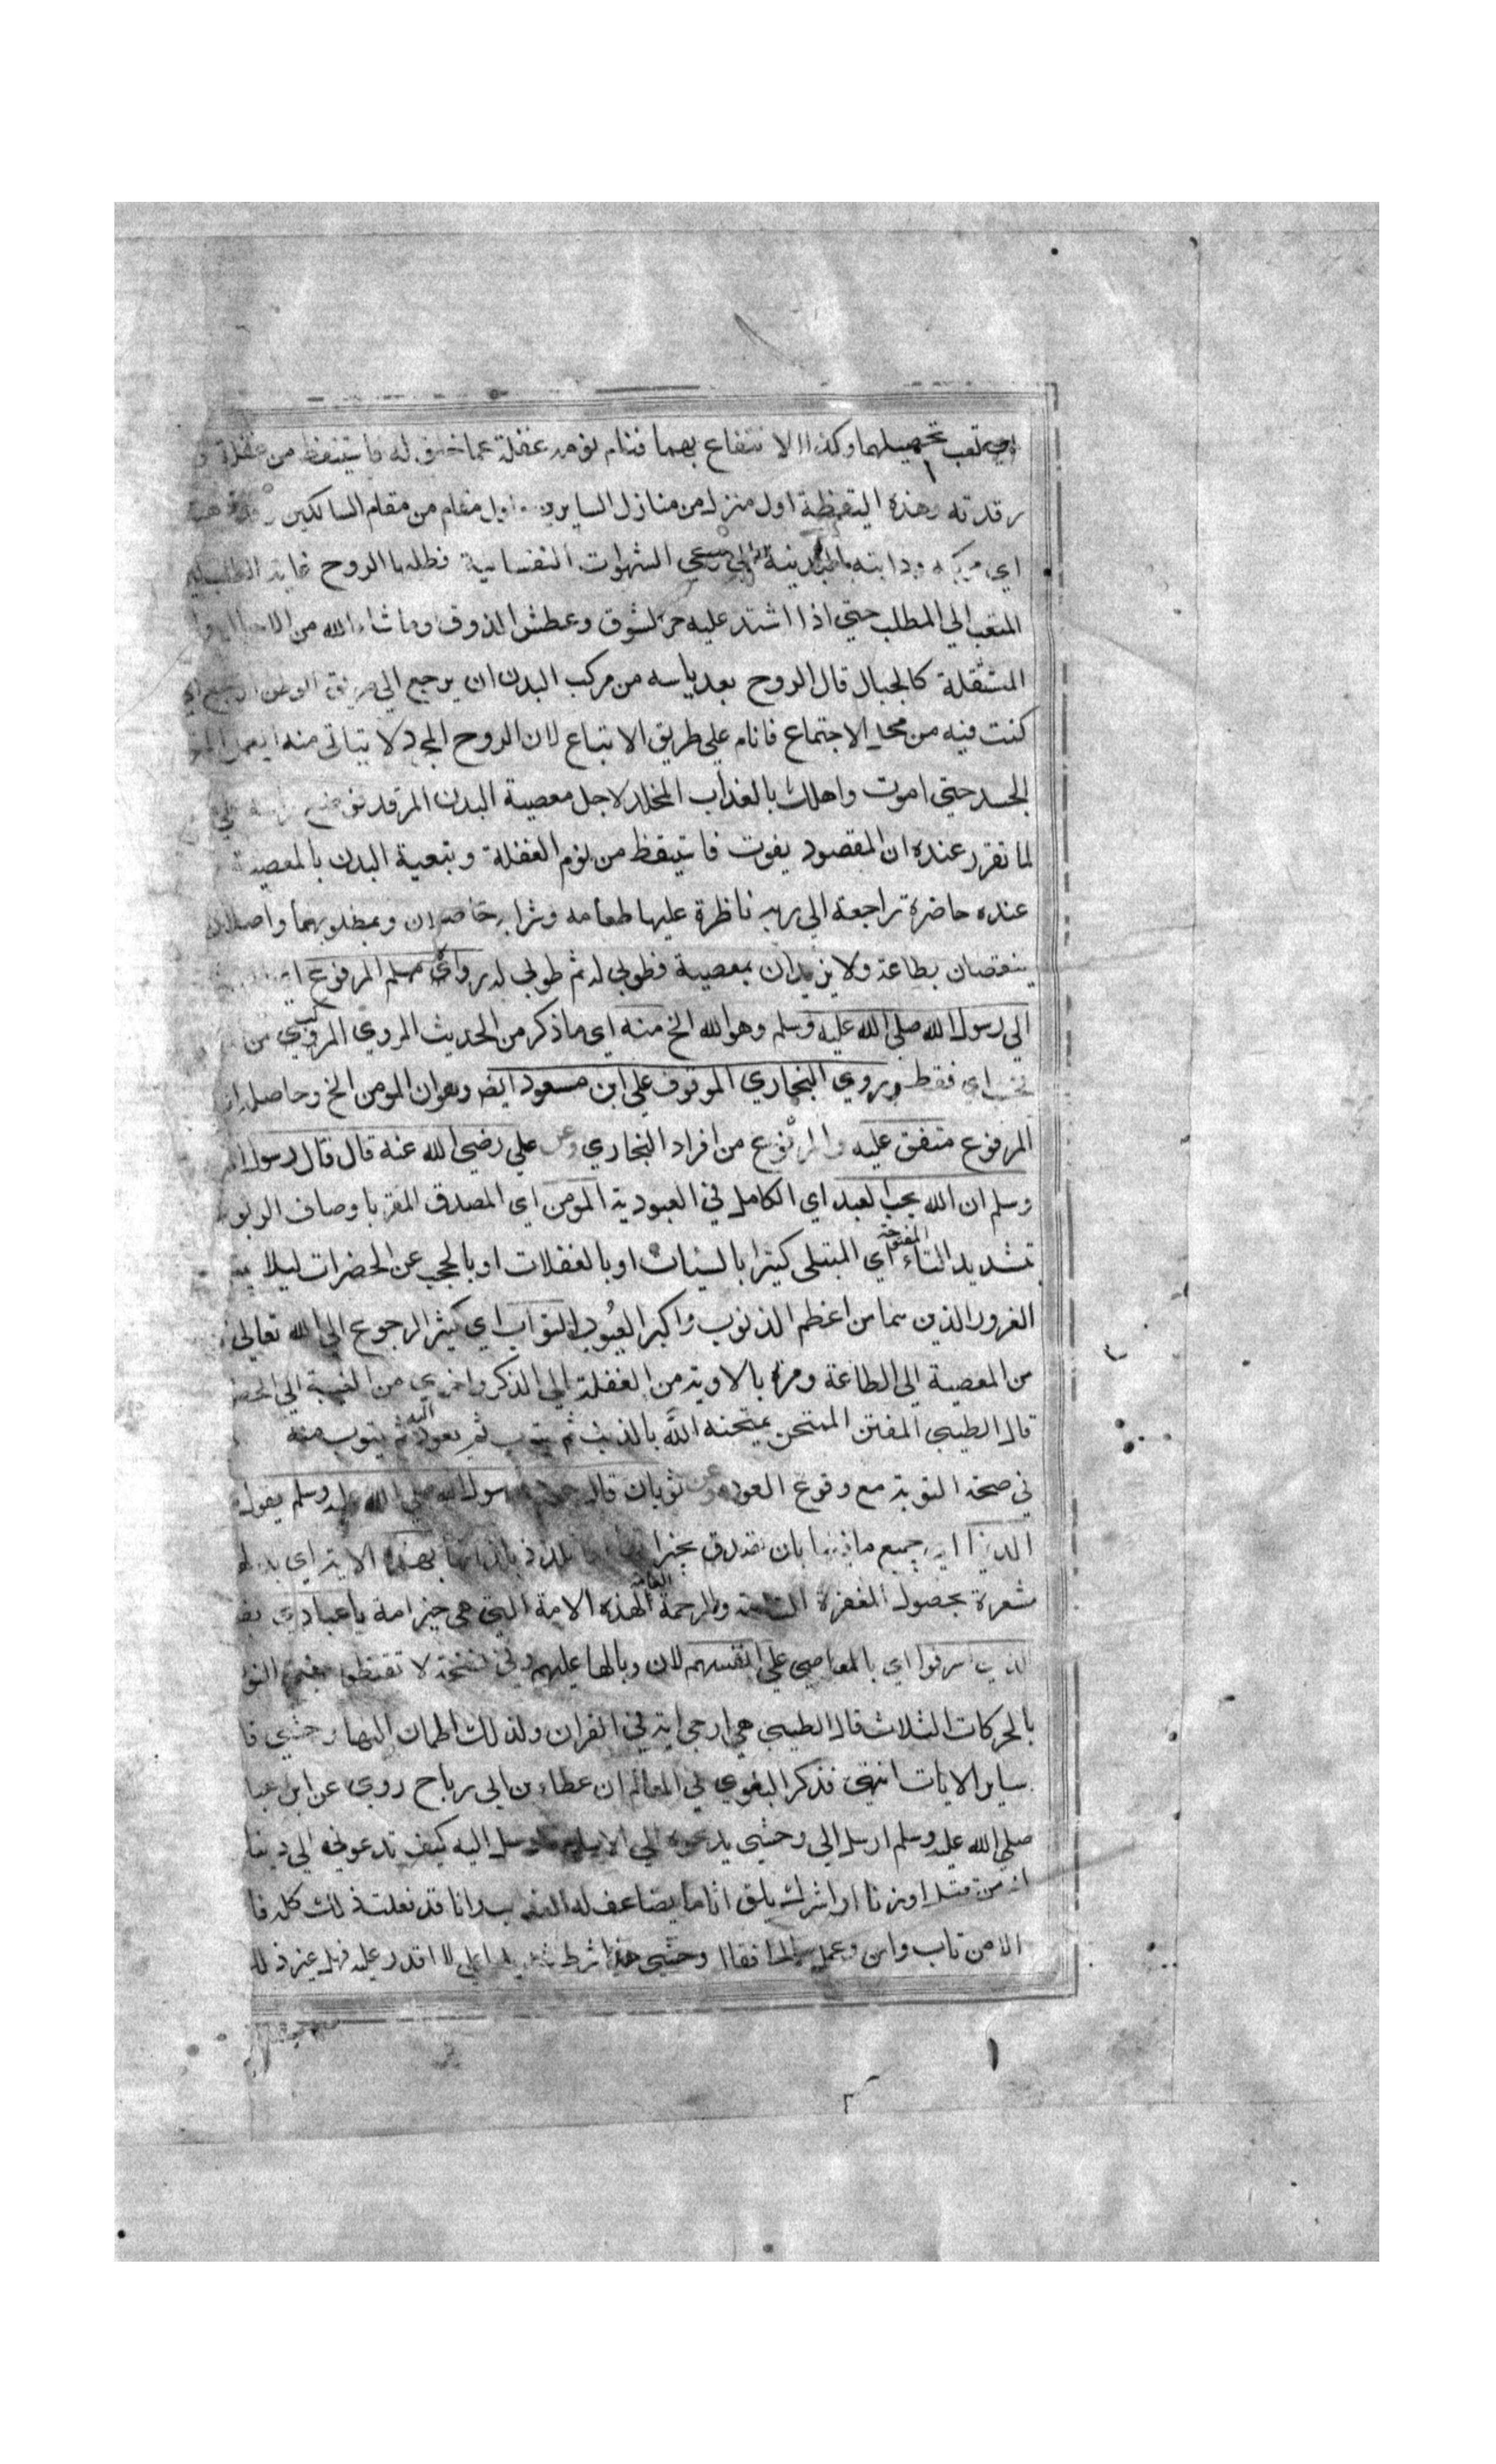 تعب تحصيلهما وكذا الانتفاع بهما فنام نومه غفلة عما خلق له فاستيقظ من غفلة
رقدته وهذه اليقظة اول منزل من منازل السايرين واول مقام من مقام السالكين وقد ذهبت
اي مركبه ودابته البدنية الي مرعي الشهوات النفسانية فطلبها الروح غاية الطلب
المتعب الي المطلب حتي اذا اشتد عليه حر الشوق وعطش الذوق وما شاء الله من الاحوال
المثقلة كالجبال قال الروح بعد ياسه من مركب البدن ان يرجع الي طريق الوطن ارجع
كنت فيه من محل الاجتماع فانام علي طريق الاتباع لان الروح المجرد لا يتاتي منه العمل
الجسد حتي اموت واهلك بالعذاب المخلد لاجل معصية البدن المرقد فوضع راسه علي
لما تقرر عنده ان المقصود يفوت فاستيقظ من نوم الغفلة وتبعية البدن بالمعصية
عنده حاضرة راجعة الي ربه ناظرة عليها طعامه وشرابه حاضران وبمطلوبهما واصلان
ينقصان بطاعة ولا يزيدان بمعصية فطوبي له ثم طوبي له روي مسلم المرفوع اي
الي رسول الله صلي الله عليه وسلم وهو لله الخ منه اي ما ذكر من الحديث المروي المركب من
فحسب اي فقط وروي البخاري الموقوف علي ابن مسعود ايض وهو ان المومن الخ وحاصله ان
المرفوع متفق عليه والموقوف من افراد البخاري وعن علي رضي الله عنه قال قال رسول
وسلم ان الله يحب العبد اي الكامل في العبودية المومن اي المصدق المقر باوصاف الربو
تشديد التاء المفتوحة اي المبتلي كثيرا بالسيئات او بالغفلات او بالحجب عن الحضرات ليلا
الغرور الذين هما من اعظم الذنوب واكبر العيوب التواب اي كثير الرجوع الي الله تعالي
من المعصية الي الطاعة ومرة بالاوبة من الغفلة الي الذكر واخري من الغيبة الي
قال الطيبي المفتن الممتحن يمتحنه الله بالذنب ثم يتوب ثم يعود اليه ثم يتوب منه
في صحة التوبة مع وقوع العود وعن ثوبان قال سمعت رسول الله صلي الله عليه وسلم يقول
الدنيا اي جميع ما فيها بان تصدق بخيراتها بهذه الاية اي بدلها
مشعرة بحصول المغفرة والرحمة العامة لهذه الامة التي هي خير امة يا عبادي
الذين اسرفوا اي بالمعاصي علي انفسهم لان وبالها عليهم وفي نسخة لا تقنطوا
بالحركات الثلاث قال الطيبي هي ارجي اية في القران ولذلك اطمان اليها وحشي
ساير الايات انتهي فذكر البغوي في المعالم ان عطاء بن ابي رباح روي عن ابن عبا
صلي الله عليه وسلم ارسل الي وحشي يدعوه الي الاسلام فارسل اليه كيف تدعوني الي دينك
ان من قتل او زنا او اشرك يلق اثاما يضاعف له العذاب وانا قد فعلت ذلك كله فا
الا من تاب وامن وعمل صالحا فقال وحشي هذا شرط شديد لعلي لا اقدر عليه فهل غير ذلك